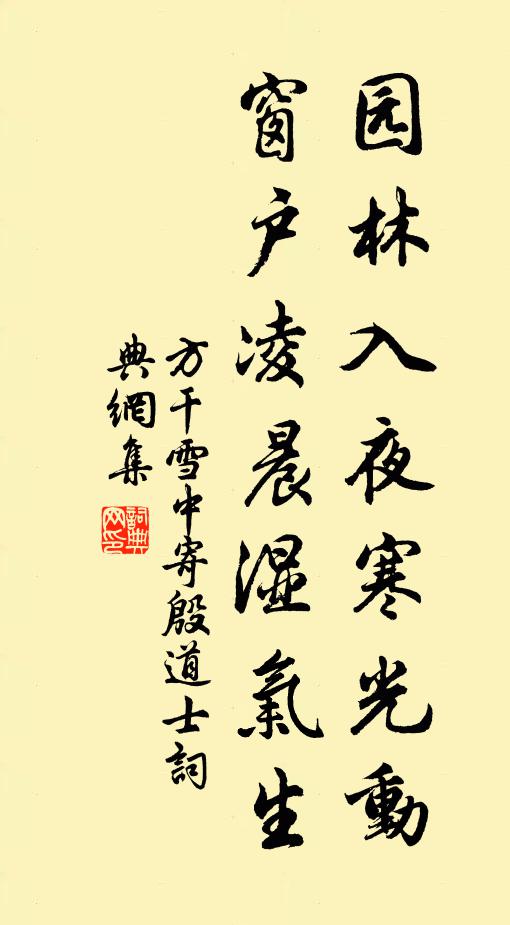 园林入夜寒光動
窗户凌晨湿氣生
方干雪中寄殷道士詞
典網集
詞典网印